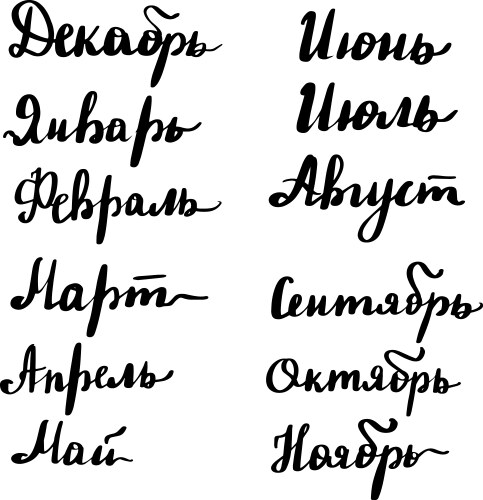 Декабрь
Январь
Февраль
Март
Апрель
Май
Июнь
Июль
Август
Сентябрь
Октябрь
Ноябрь